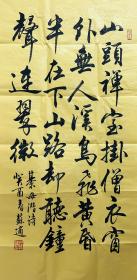 山頭禅室掛僧衣窗
外無人溪鳥飛黄昏
半在下山路却聽鐘
聲連翠微
綦毋潜詩